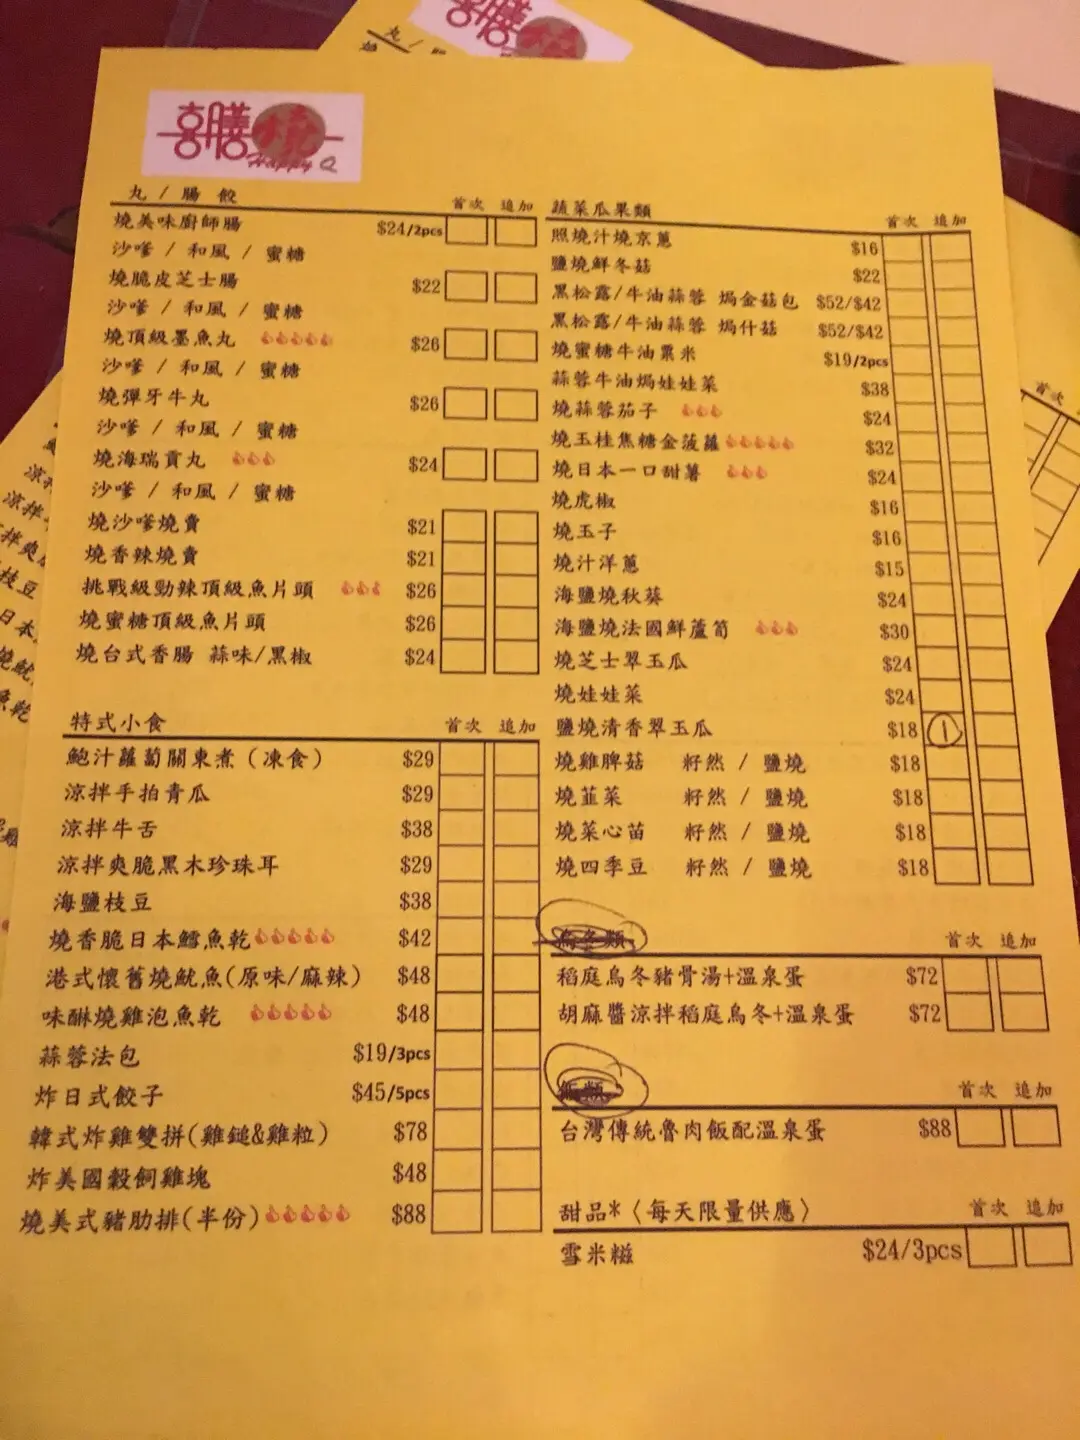 喜膳燒
Happy Q
丸 / 腸 餃 首次 追加
燒美味廚師腸 $24/2pcs
沙嗲 / 和風 / 蜜糖
燒脆皮芝士腸 $22
沙嗲 / 和風 / 蜜糖
燒頂級墨魚丸 $26
沙嗲 / 和風 / 蜜糖
燒彈牙牛丸 $26
沙嗲 / 和風 / 蜜糖
燒海瑞貢丸 $24
沙嗲 / 和風 / 蜜糖
燒沙嗲燒賣 $21
燒香辣燒賣 $21
挑戰級勁辣頂級魚片頭 $26
燒蜜糖頂級魚片頭 $26
燒台式香腸 蒜味/黑椒 $24
特式小食 首次 追加
鮑汁蘿蔔關東煮(凍食) $29
涼拌手拍青瓜 $29
涼拌牛舌 $38
涼拌爽脆黑木珍珠耳 $29
海鹽枝豆 $38
燒香脆日本鱈魚乾 $42
港式懷舊燒魷魚(原味/麻辣) $48
味醂燒雞泡魚乾 $48
蒜蓉法包 $19/3pcs
炸日式餃子 $45/5pcs
韓式炸雞雙拼(雞鎚&雞粒) $78
炸美國穀飼雞塊 $48
燒美式豬肋排(半份) $88
蔬菜瓜果類 首次 追加
照燒汁燒京蔥 $16
鹽燒鮮冬菇 $22
黑松露/牛油蒜蓉 焗金菇包 $52/$42
黑松露/牛油蒜蓉 焗什菇 $52/$42
燒蜜糖牛油粟米 $19/2pcs
蒜蓉牛油焗娃娃菜 $38
燒蒜蓉茄子 $24
燒玉桂焦糖金菠蘿 $32
燒日本一口甜薯 $24
燒虎椒 $16
燒玉子 $16
燒汁洋蔥 $15
海鹽燒秋葵 $24
海鹽燒法國鮮蘆筍 $30
燒芝士翠玉瓜 $24
燒娃娃菜 $24
鹽燒清香翠玉瓜 $18 1
燒雞脾菇 籽然 / 鹽燒 $18
燒韮菜 籽然 / 鹽燒 $18
燒菜心苗 籽然 / 鹽燒 $18
燒四季豆 籽然 / 鹽燒 $18
烏冬類 首次 追加
稻庭烏冬豬骨湯+溫泉蛋 $72
胡麻醬涼拌稻庭烏冬+溫泉蛋 $72
飯類 首次 追加
台灣傳統魯肉飯配溫泉蛋 $88
甜品*〈每天限量供應〉 首次 追加
雪米糍 $24/3pcs